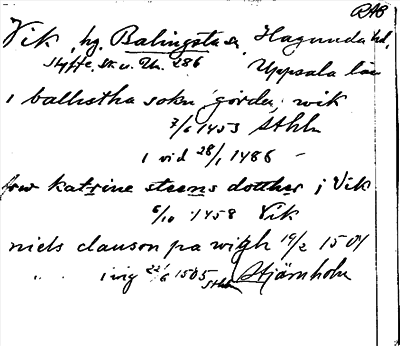 RAÄ
Vik, hg. Balingsta sn, Hagunda hd,
Styffe, Sk. u. Un. 286 Uppsala län
i balletha sokn gördu, wik
7/6 1453 Sthlm
i vid 28/1 1486 —
frw katrine steens dotther j Vik
6/10 1458 Vik
niels clauson pa wigh 19/2 1501
" " i vig 22/6 1505 Sthlm Stjärnholm